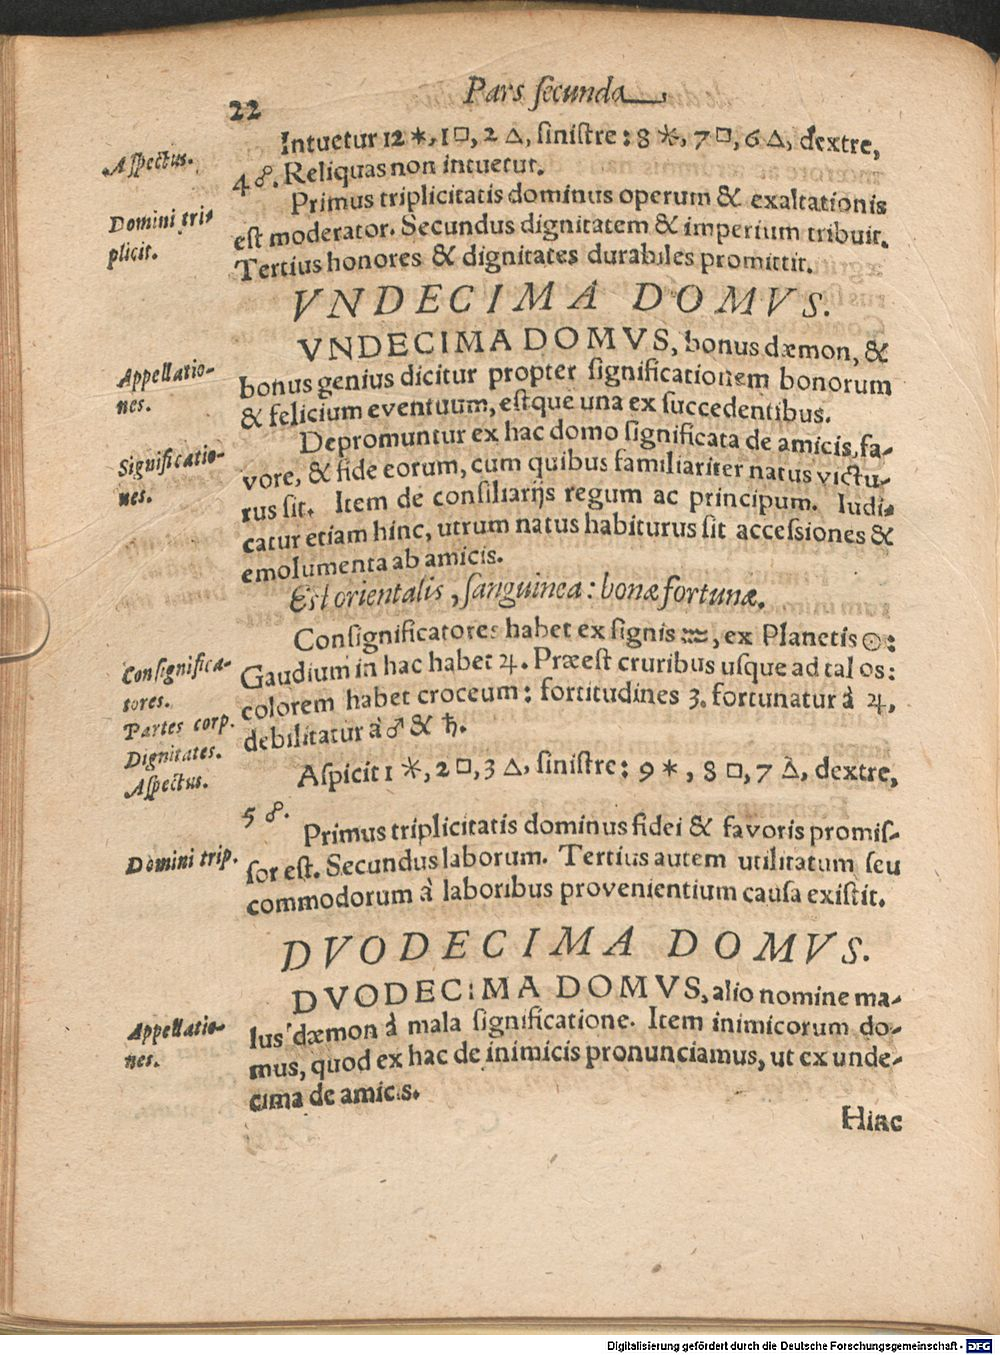 22
Pars ſecunda
Aſpectus.
Intuetur 12 ⚹, 1 □, 2 △, ſiniſtre: 8 ⚹, 7 □, 6 △, dextre,
4 ☍. Reliquas non intuetur.
Domini tri-
plicit.
Primus triplicitatis dominus operum & exaltationis
eſt moderator. Secundus dignitatem & imperium tribuit.
Tertius honores & dignitates durabiles promittit.
VNDECIMA DOMVS.
Appellatio-
nes.
VNDECIMA DOMVS, bonus dæmon, &
bonus genius dicitur propter ſignificationem bonorum
& felicium euentuum, eſtque una ex ſuccedentibus.
Significatio-
nes.
Depromuntur ex hac domo ſignificata de amicis, fa-
vore, & fide eorum, cum quibus familiariter natus victu-
rus ſit. Item de conſiliarijs regum ac principum. Iudi-
catur etiam hinc, utrum natus habiturus ſit acceſsiones &
emolumenta ab amicis.
Eſt orientalis, ſanguinea: bonæ fortunæ.
Conſignifica-
tores.
Partes corp.
Dignitates.
Conſignificatores habet ex ſignis ♒, ex Planetis ☉:
Gaudium in hac habet ♃. Præeſt cruribus uſque ad talos:
colorem habet croceum: fortitudines 3. fortunatur à ♃,
debilitatur à ♂ & ♄.
Aſpectus.
Aſpicit 1 ⚹, 2 □, 3 △, ſiniſtre: 9 ⚹, 8 □, 7 △, dextre,
5 ☍.
Domini trip.
Primus triplicitatis dominus fidei & favoris promiſ-
ſor eſt. Secundus laborum. Tertius autem utilitatum ſeu
commodorum à laboribus provenientium cauſa exiſtit.
DVODECIMA DOMVS.
Appellatio-
nes.
DVODECIMA DOMVS, alio nomine ma-
lus dæmon à mala ſignificatione. Item inimicorum do-
mus, quod ex hac de inimicis pronunciamus, ut ex unde-
cima de amicis.
Hinc
Digitalisierung gefördert durch die Deutsche Forschungsgemeinschaft - DFG